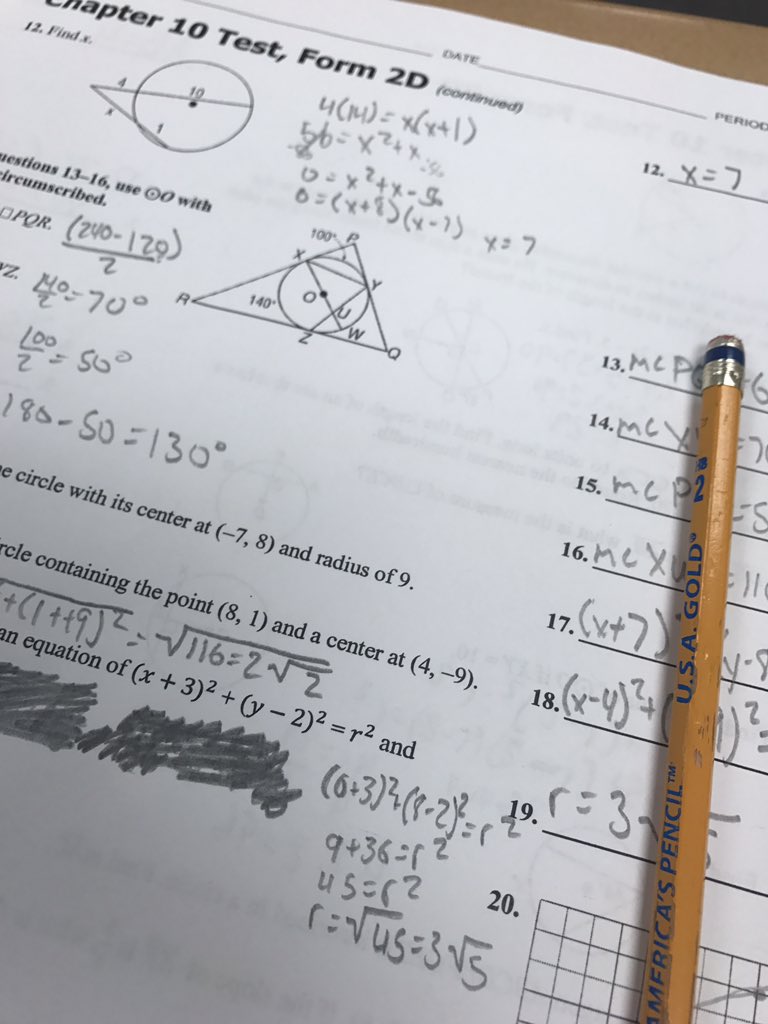 Chapter 10 Test, Form 2D (continued)
DATE
PERIOD
12. Find x.
4
10
x
1
4(14)=x(x+1)
56=x²+x
0=x²+x-56
0=(x+8)(x-7) x=7
12. x=7
uestions 13–16, use ⊙O with
circumscribed.
PQR. (240-120)
2
YZ. 140
2 =70°
100
2 =50°
180-50=130°
100°
P
X
Y
R
140°
O
U
W
Z
Q
13. m<P
14. m<X =70
15. m<P =5
16. m<X =110
e circle with its center at (–7, 8) and radius of 9.
17. (x+7) y-8
rcle containing the point (8, 1) and a center at (4, –9).
+(1++9)²=√116=2√2
18. (x-4)²+( 9)²=
an equation of (x + 3)² + (y – 2)² = r² and
(6+3)²+(8-2)²=r²
9+36=r²
45=r²
r=√45=3√5
19. r=3√5
20.
U.S.A. GOLD® 2 HB
AMERICA'S PENCIL™